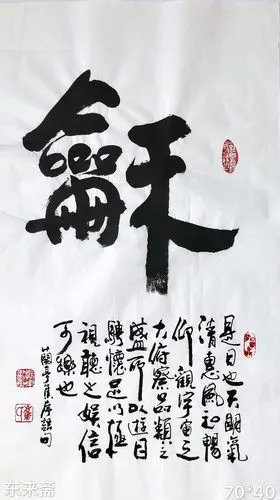 龢
是日也天朗氣
清惠風和暢
仰觀宇宙之
大俯察品類之
盛所以遊目
騁懷足以極
視聽之娛信
可樂也
蘭亭集序句
东来斋
70*40